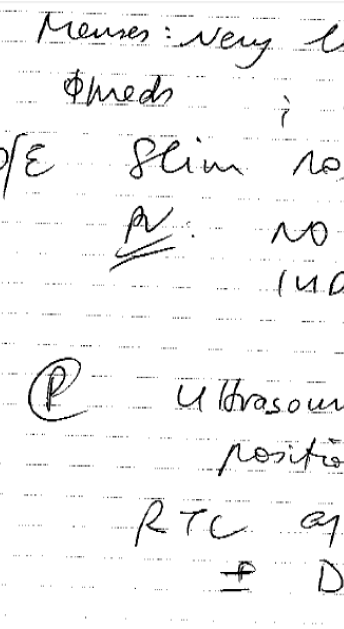 Menses: Very
Ø meds ;
O/E Slim
PV: NO
IUD
Ⓟ Ultrasoun
positio
RTC
± D